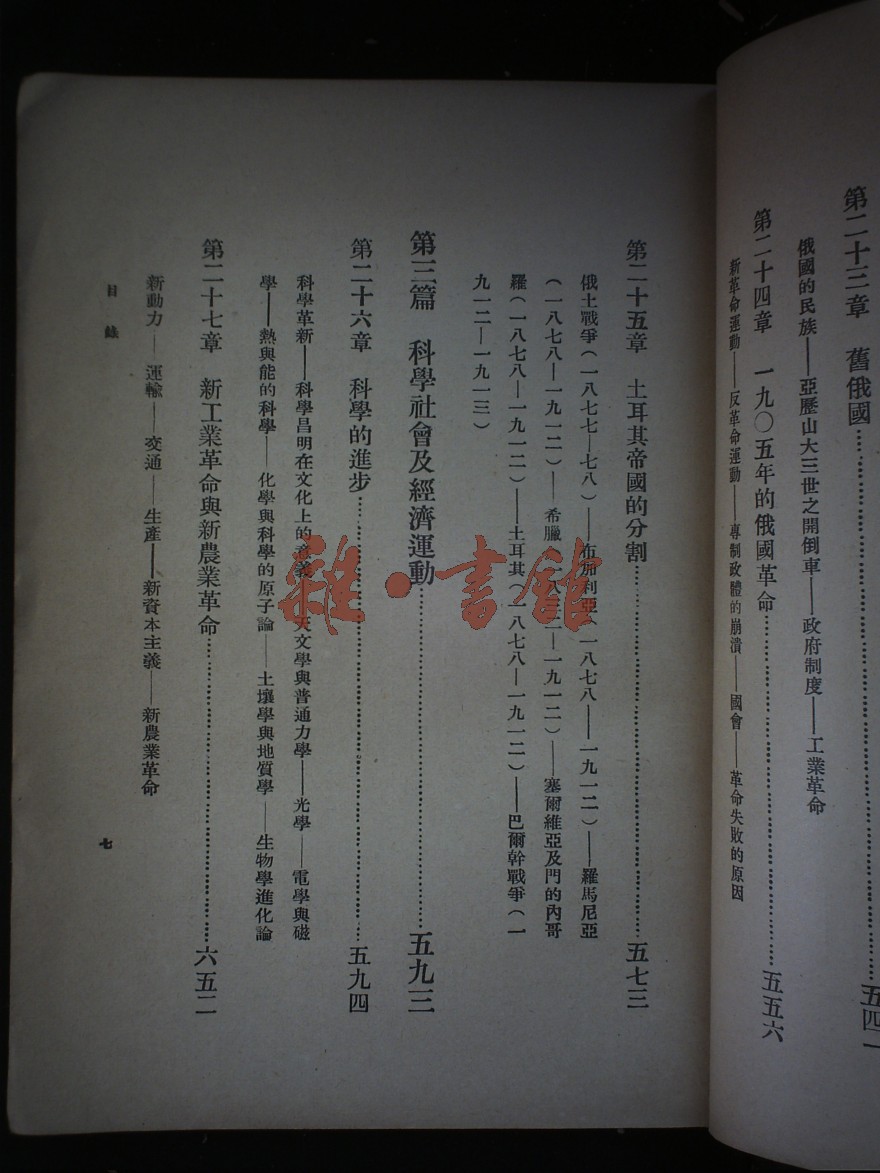 第二十三章　舊俄國……五四一
俄國的民族——亞歷山大三世之開倒車——政府制度——工業革命
第二十四章　一九〇五年的俄國革命……五五六
新革命運動——反革命運動——專制政體的崩潰——國會——革命失敗的原因
第二十五章　土耳其帝國的分割……五七三
俄土戰爭(一八七七—七八)——布加利亞(一八七八——一九一二)——羅馬尼亞
(一八七八—一九一二)——希臘 一九一二)——塞爾維亞及門的內哥
羅(一八七八—一九一二)——土耳其(一八七八—一九一二)——巴爾幹戰爭(一
九一二—一九一三)
第三篇　科學社會及經濟運動……五九三
第二十六章　科學的進步……五九四
科學革新——科學昌明在文化上的意義——天文學與普通力學——光學——電學與磁
學——熱與能的科學——化學與科學的原子論——土壤學與地質學——生物學進化論
第二十七章　新工業革命與新農業革命……六五二
新動力——運輸——交通——生產——新資本主義——新農業革命
目錄
七
雜·書館